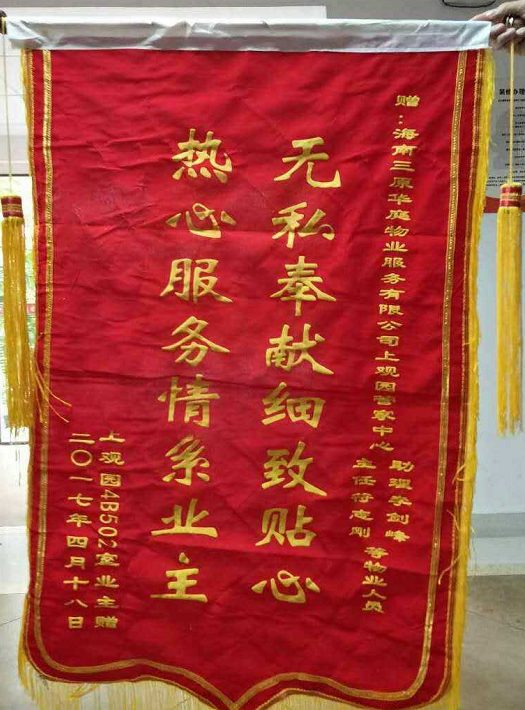 赠：海南三原华庭物业服务有限公司上观园管家中心
助理李剑峰
主任符志刚
等物业人员
无私奉献细致贴心
热心服务情系业主
上观园4B502室业主赠
二〇一七年四月十八日